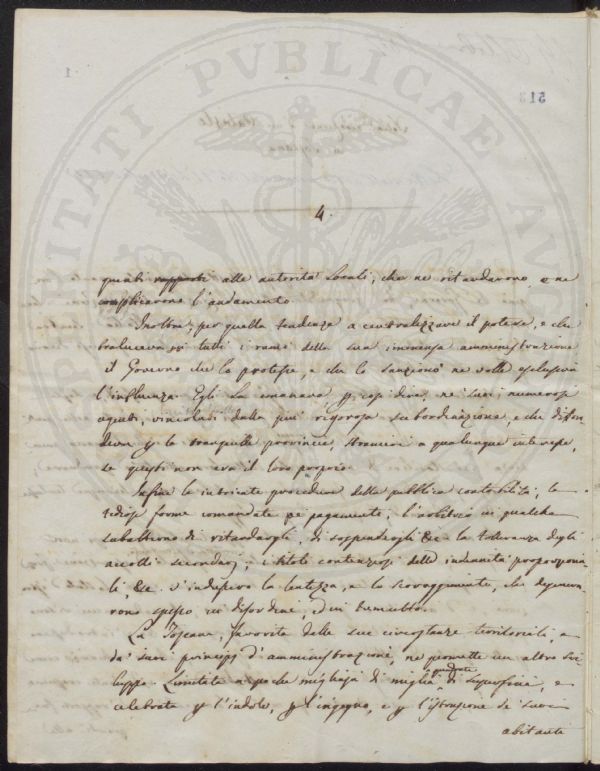 513
1
4.
quali rapporti alle autorità locali, che ne ritardarono e ne
complicarono l'andamento
Inoltre, per quella tendenza a centralizzare il potere, e che
traluceva in tutti i rami della sua immensa amministrazione
il Governo che la protesse, e che la sanzionò ne volle esclusiva
l'influenza. Egli la emanava p. così dire, ne' suoi numerosi
agenti, vincolati dalla più rigorosa subordinazione, e che
p le provincie, stranieri a qualunque interesse,
se questi non era il loro proprio
Infine le intricate procedure della pubblica contabilità, le
tediose forme comandate pe' pagamenti, l'arbitrio in qualche
subalterno di ritardargli, di sospendergli &c la tolleranza degli
accolli secondarj, i titoli contenziosi delle indennità
&c. la lentezza, e lo scoraggimento, che degenera-
rono spesso in disordine,
La Toscana, favorita dalle sue circostanze territoriali, e
da' suoi principj d'amministrazione, ne permette un altro svi-
luppo. Limitata a poche migliaja di miglia quadrate di superficie, e
celebrata p l'indole, p l'ingegno, e p l'istruzione de' suoi
abitanti
PUBLICAE